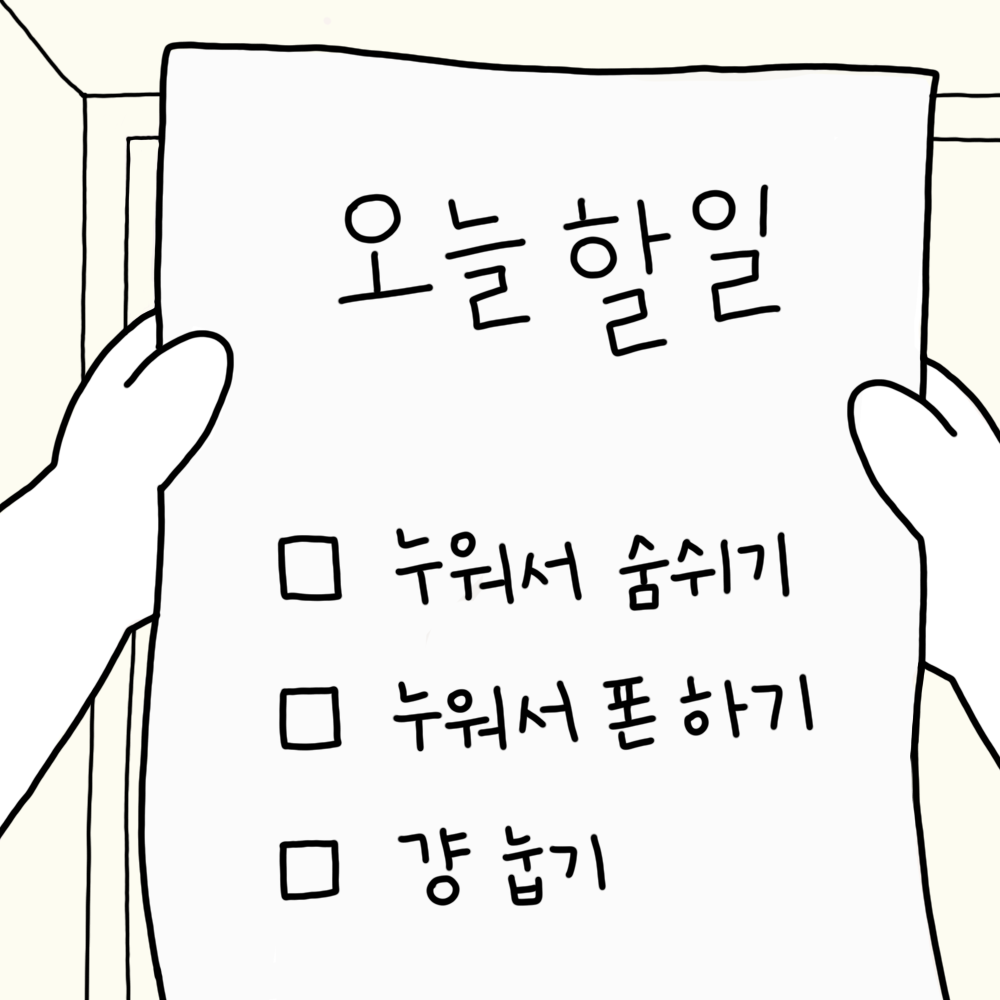 오늘 할일
누워서 숨쉬기
누워서 폰 하기
걍 눕기